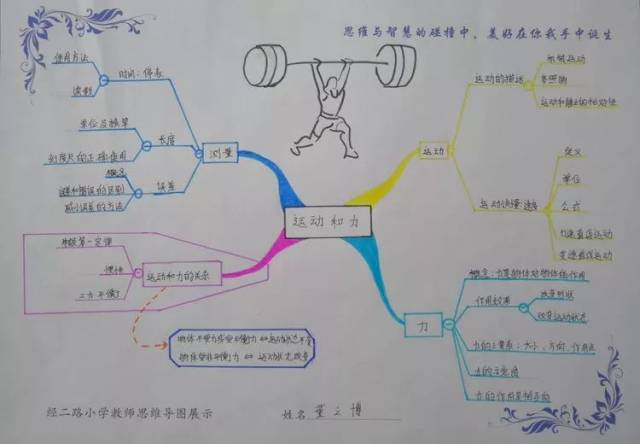 思维与智慧的碰撞中，美好在你我手中诞生
使用方法
读数
时间：停表
单位及换算
刻度尺的正确使用
长度
概念
误差和错误的区别
减小误差的方法
误差
测量
机械运动
参照物
运动和静止的相对性
运动的描述
运动
定义
单位
公式
匀速直线运动
变速直线运动
运动和力
牛顿第一定律
惯性
二力平衡
运动和力的关系
概念：力是物体对物体的作用
作用效果
改变形状
改变运动状态
力
力的三要素：大小、方向、作用点
力的示意图
力的作用是相互的
经二路小学教师思维导图展示
姓名